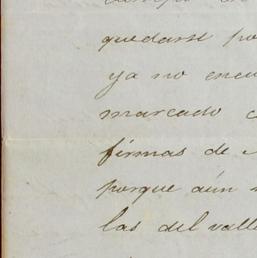 quedarse po
ya no encu
marcado c
firmas de
porque aún
las del valle